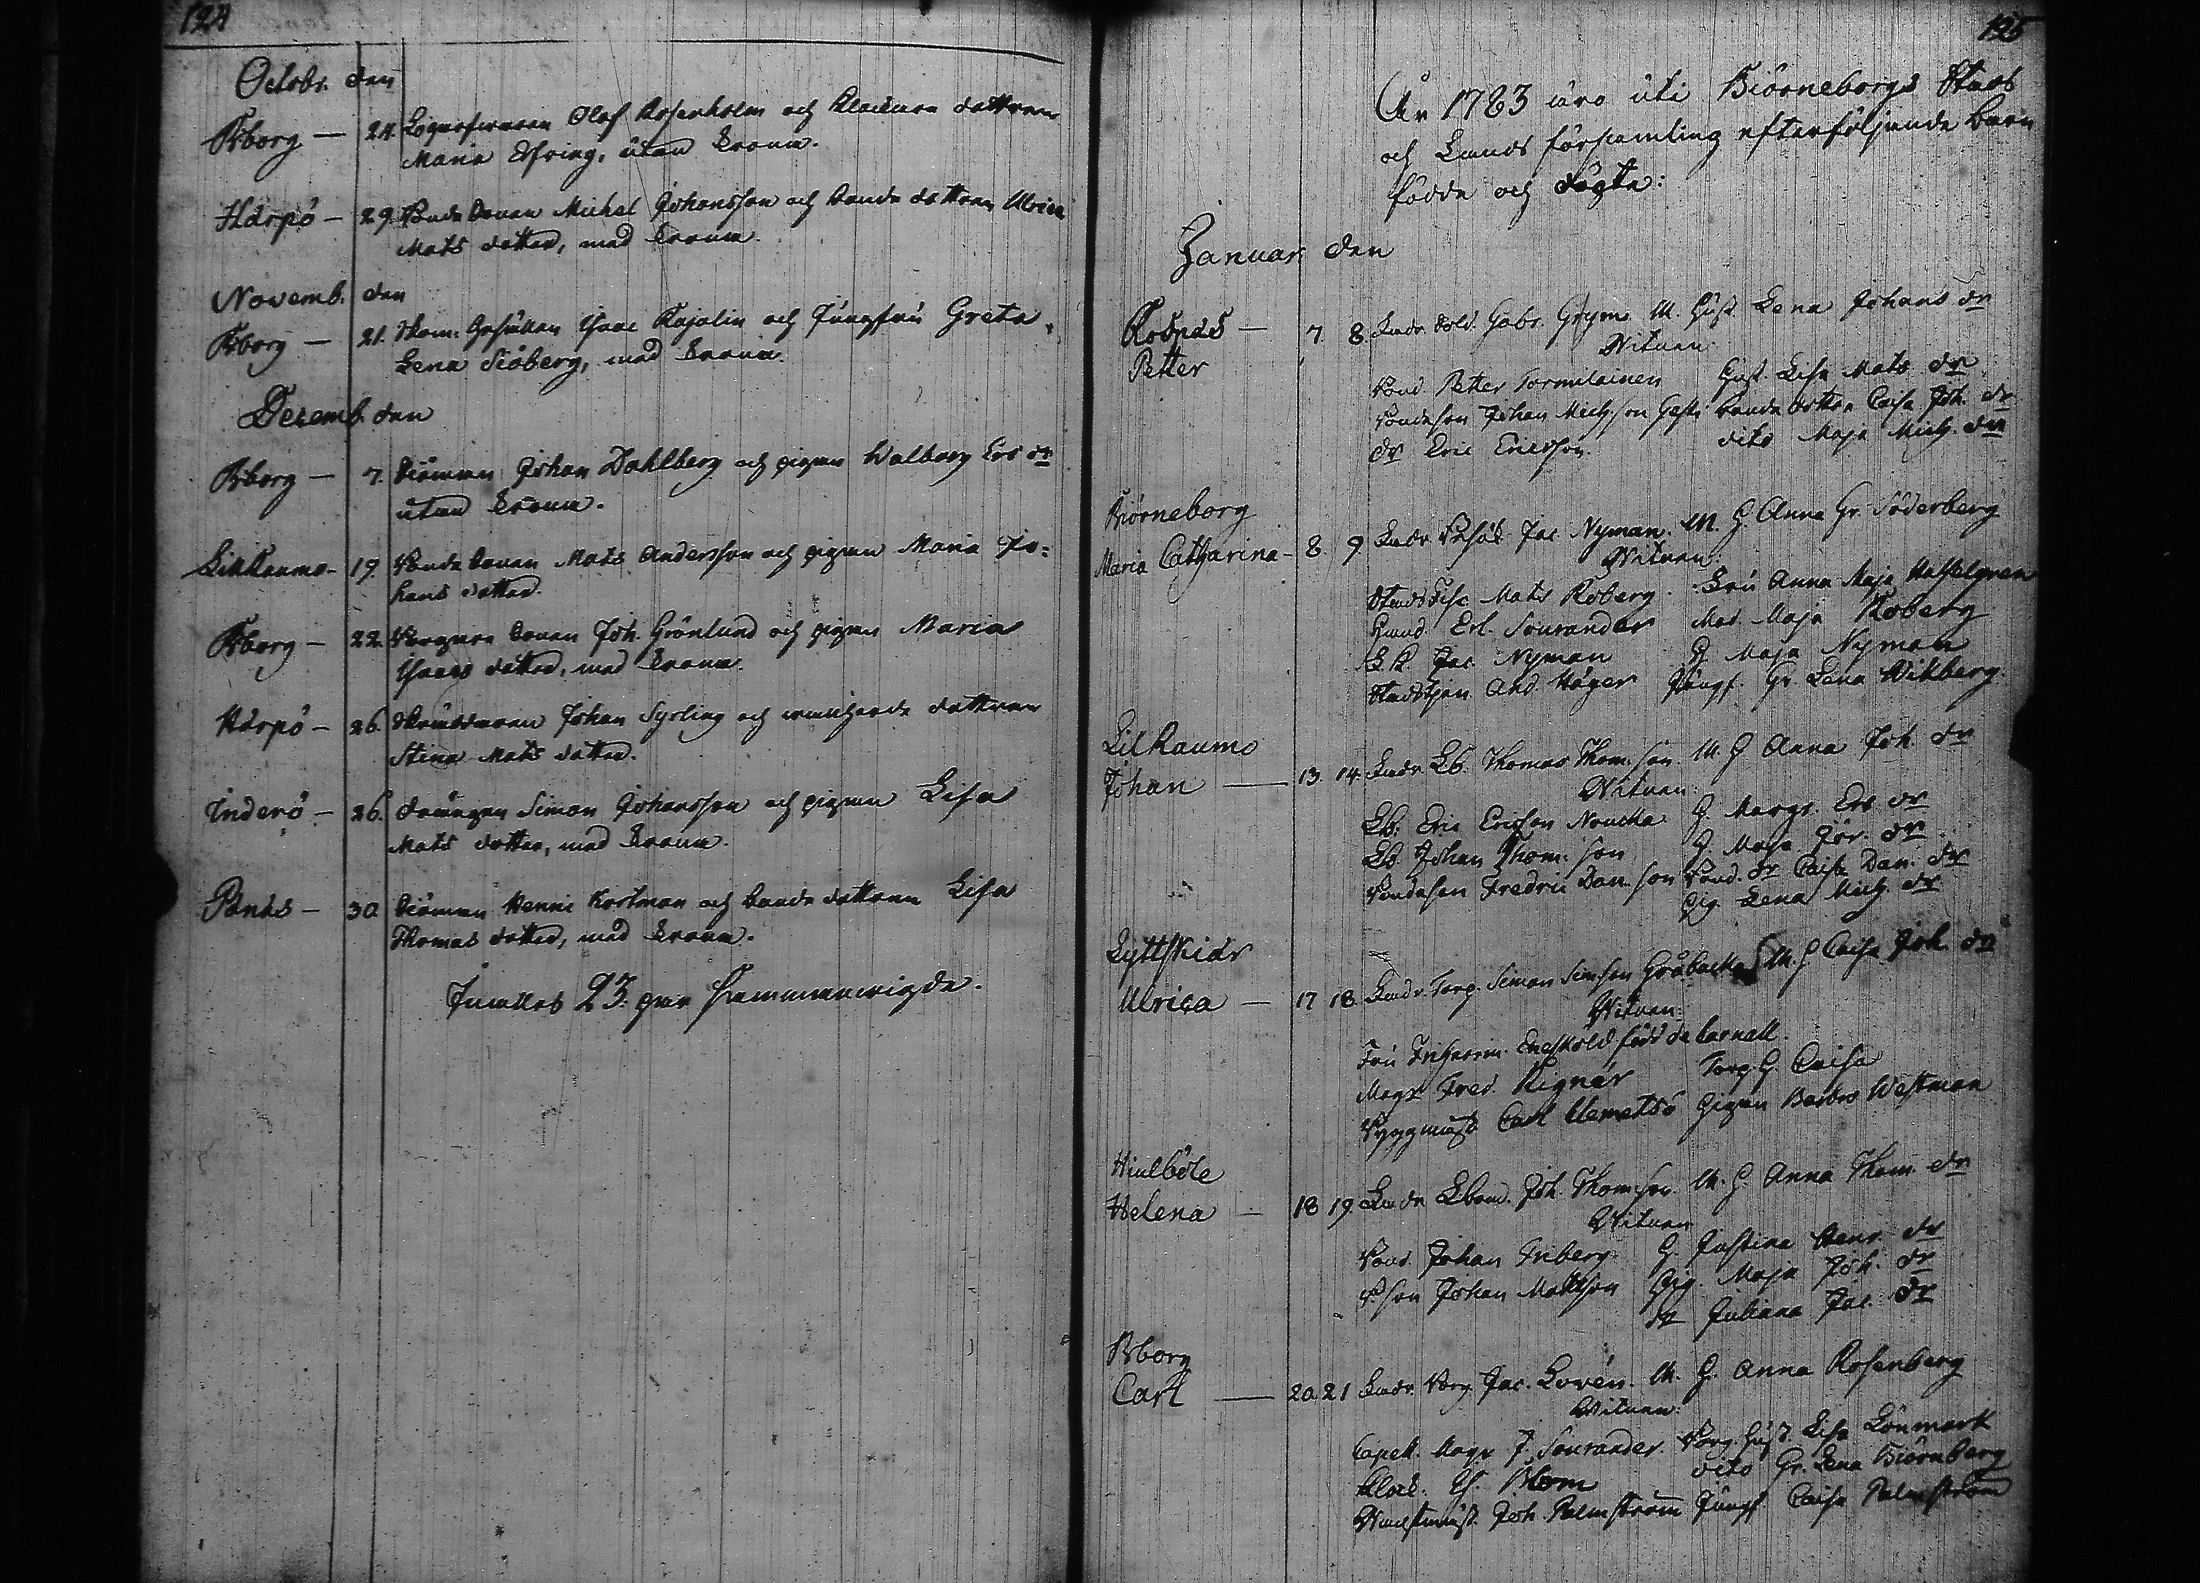 124
Octobr. den
Bborg — 24. Olof Rosenholm och dottren
Maria utan Krona.
Härpö — 29. Bonde Michel Johansson och bonde dottren Ulrica
Mats dotter, med Krona.
Novemb. den
Bborg — 21. Isaac Kajalin och Jungfru Greta
Lena Siöberg, med Krona.
Decemb. den
Bborg — 7. Siöman Johan Dahlberg och pigan Walborg Ers dr
utan Krona.
LillRaumo — 19. Bonde Mats Andersson och pigan Maria Jo=
hans dotter.
Bborg — 22. Joh. Grönlund och pigan Maria
Isaacs dotter, med Krona.
Härpö — 26. Johan Syrling och dottren
Stina Mats dotter.
Inderö — 26. drängen Simon Johansson och pigan Lisa
Mats dotter, med Krona.
Pänäs — 30. Siöman Henric Kortman och bonde dottren Lisa
Thomas dotter, med Krona.
Inalles 23. par Sammanwigde.
125
År 1783 äro uti Biörneborgs Stads
och Lands församling efterföljande barn
födde och döpte:
Januar. den
Rosnäs — 7. 8. Gabr. Grym M. Hust. Lena Johans dr
Petter Witnen:
Bond. Petter Tormilainen Hust. Lisa Mats dr
Bondeson Johan Mich.son bonde dottr. Caisa Joh. dr
dr Eric Ericsson. dito Maja Mich. dr
Biörneborg
Maria Catharina — 8. 9. Jac. Nyman. M. H. Anna Gr. Söderberg
Witnen:
Mats Roberg. Fru Anna Maja Hasselgren
Erl. Sourander Mad. Maja Roberg
Jac. Nyman H. Maja Nyman
And. Höger Jungf. Gr. Lena Wikberg.
LillRaumo
Johan — 13. 14. Thomas Thom.son M. H. Anna Joh. dr
Witnen:
Eric Ericsson Noucka H. Margr. Ers dr
Johan Thom.son H. Maja Jör. dr
Bondeson Fredric Dan.son Bond. dr Caisa Dan. dr
Pig. Lena Mich. dr
Lyttskiär
Ulrica — 17 18. Torp. Simon Simson Gråbacka M. H. Caisa Joh. dr
Witnen:
Fru Friherrin. född de Carnall.
Magr. Fred. Rignär Torp. H. Caisa
Carl Clemetsö Pigan Barbro Westman
Hiulböle
Helena — 18 19. Joh. Thomson M. H. Anna Thom. dr
Witnen
Bond. Johan Friberg H. Justina Henr. dr
B.son Johan Mattson Pig. Maja Joh. dr
dr Juliana Jac. dr
Bborg
Carl — 20. 21 Jac. Lovén. M. H. Anna Rosenberg
Witnen:
Capell. Magr. J. Sourander. Borg. Hust. Lisa Lönmark
Klock. Is. Blom dito Gr. Lena Biörnberg
Joh. Palmström Jungf. Caisa Palmström